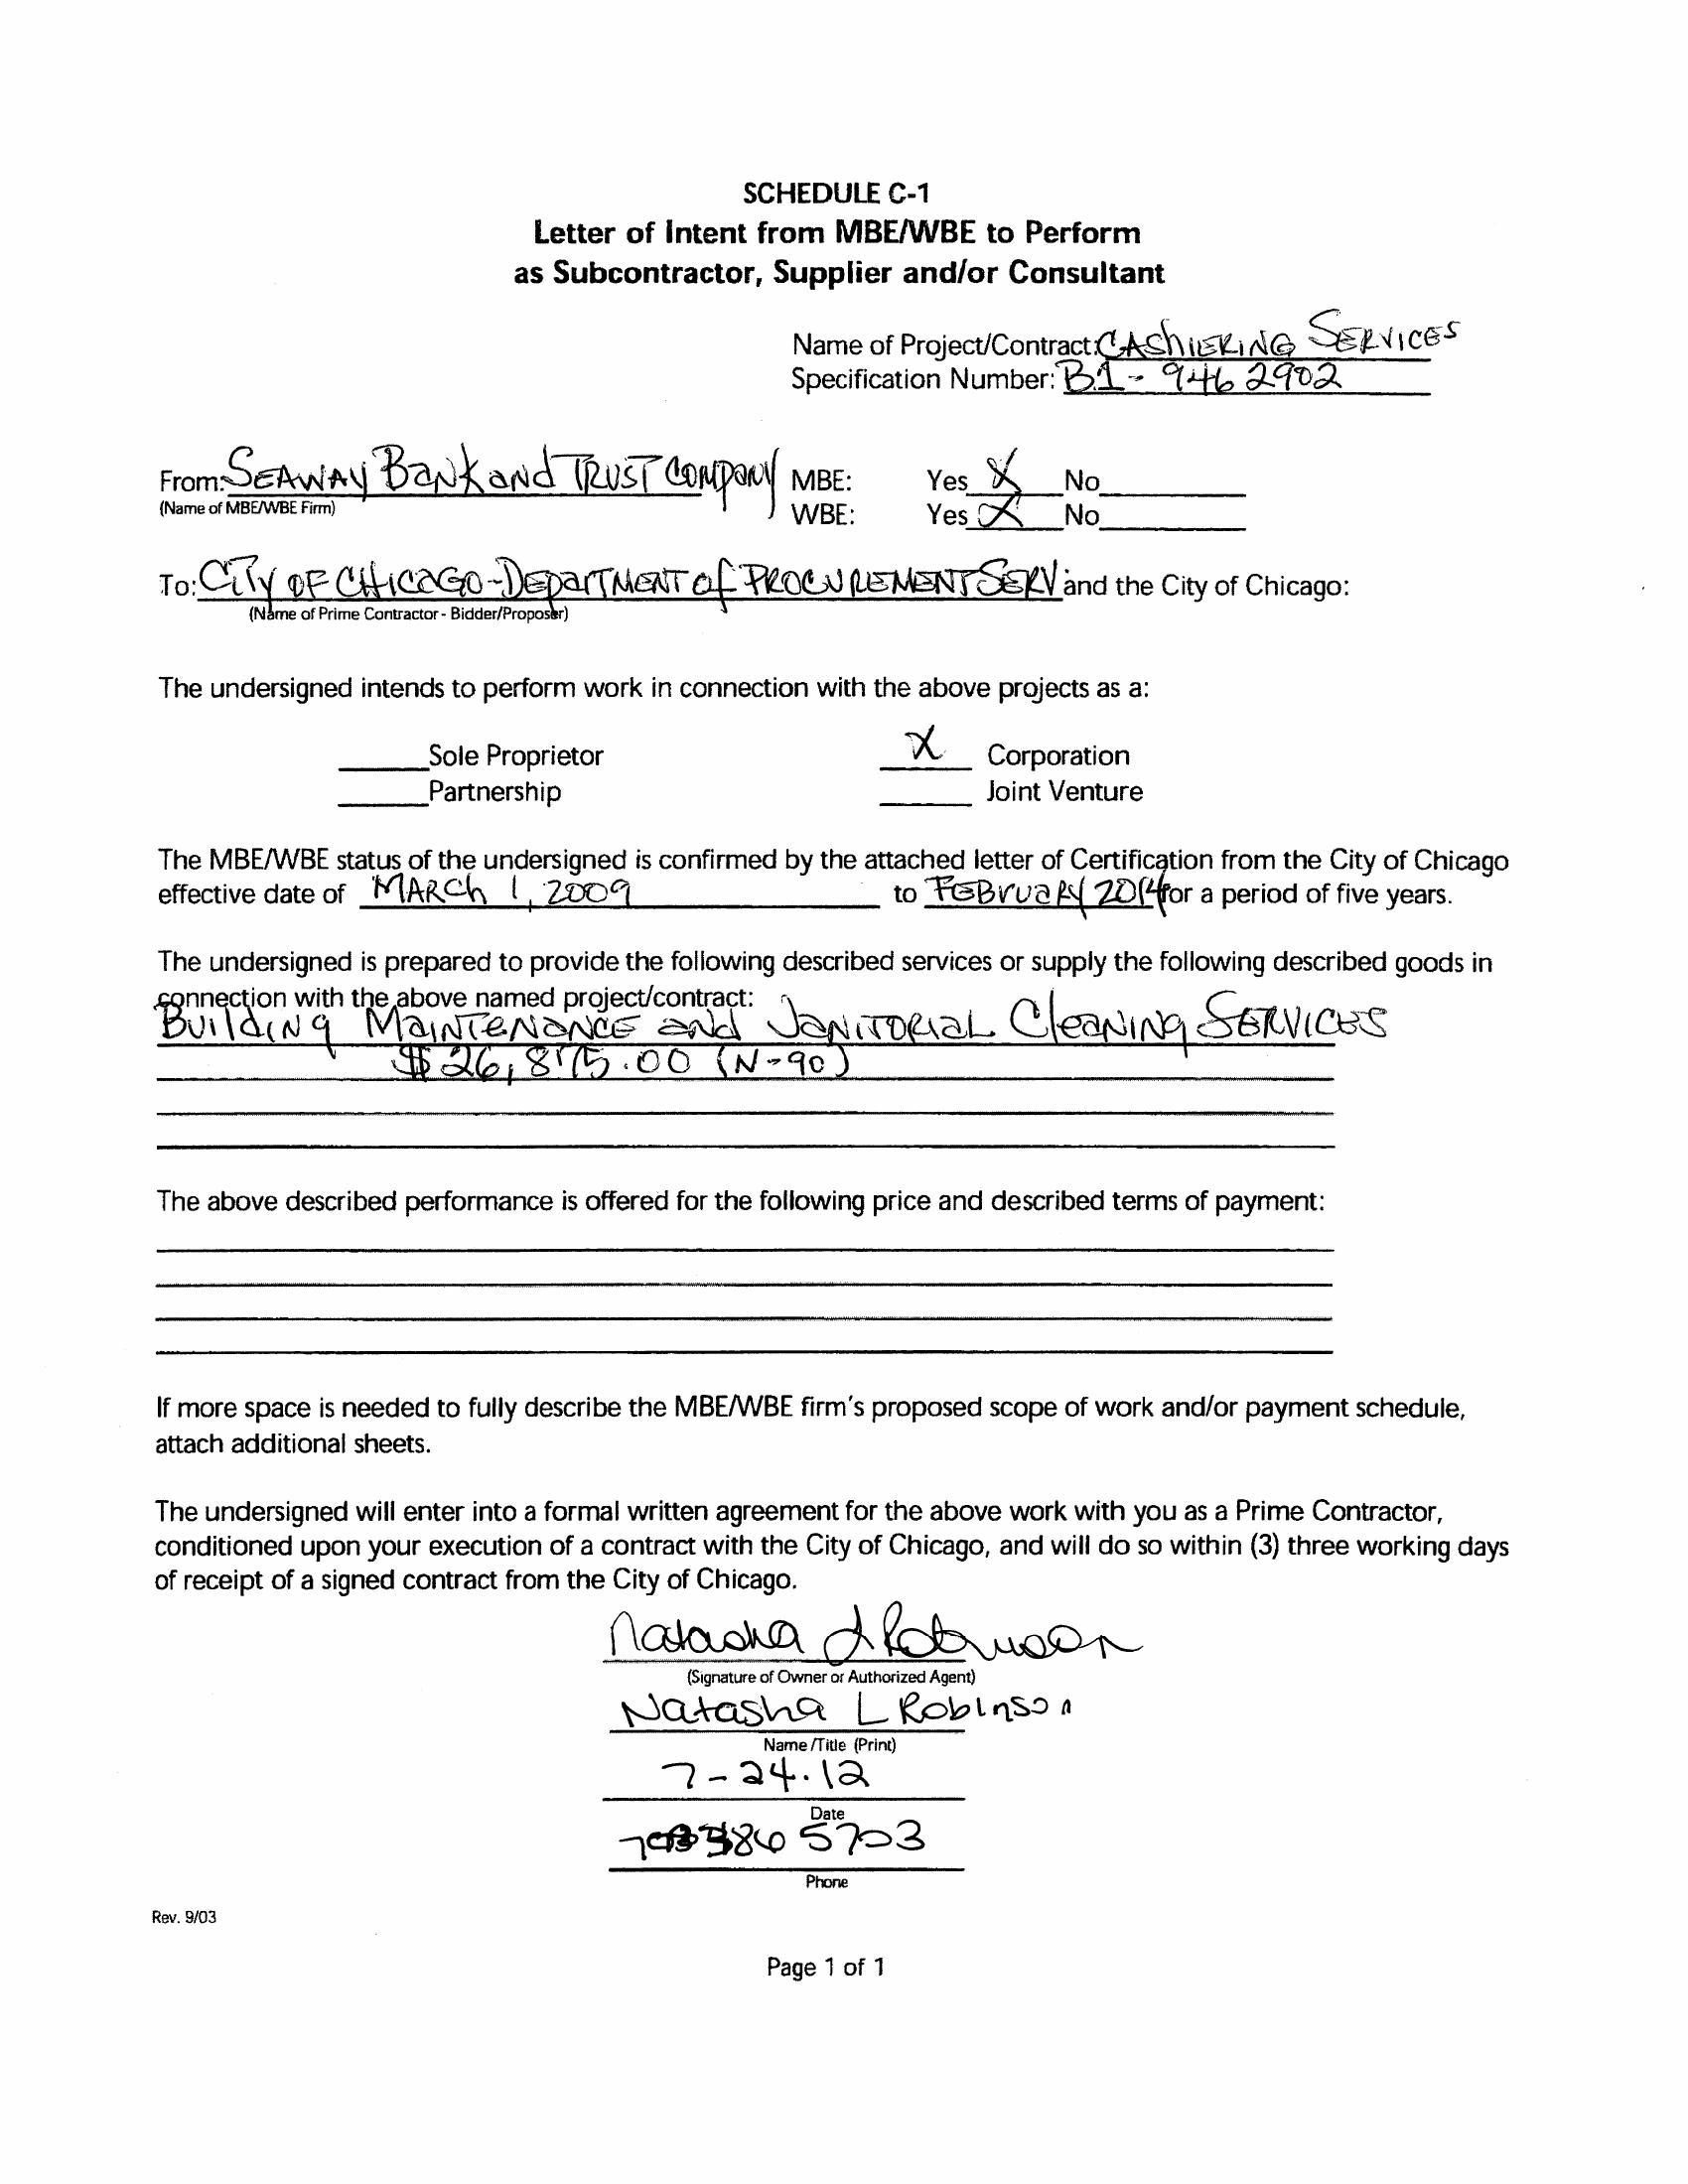 SCHEDULE C-1
Letter of Intent from MBE/WBE to Perform
as Subcontractor, Supplier and/or Consultant
Name of Project/Contract: CAShiERiNG SERVICES
Specification Number: B1 - 946 2902
From: SEAWAY BaNk aNd TRUST COMPaNY MBE: Yes X No
(Name of MBE/WBE Firm) WBE: Yes X No
To: CiTy OF CHicaGO - DEparTMENT of PROCUREMENT SERV and the City of Chicago:
(Name of Prime Contractor - Bidder/Proposer)
The undersigned intends to perform work in connection with the above projects as a:
Sole Proprietor X Corporation
Partnership Joint Venture
The MBE/WBE status of the undersigned is confirmed by the attached letter of Certification from the City of Chicago
effective date of MARCh 1, 2009 to FEBruaRy 2014 for a period of five years.
The undersigned is prepared to provide the following described services or supply the following described goods in
connection with the above named project/contract:
BuildiNg MaiNTeNaNCE aNd JaNiTORiaL CleaNiNg SERVICES
$26,875.00 (N-90)
The above described performance is offered for the following price and described terms of payment:
If more space is needed to fully describe the MBE/WBE firm's proposed scope of work and/or payment schedule,
attach additional sheets.
The undersigned will enter into a formal written agreement for the above work with you as a Prime Contractor,
conditioned upon your execution of a contract with the City of Chicago, and will do so within (3) three working days
of receipt of a signed contract from the City of Chicago.
Natasha L Robinson
(Signature of Owner or Authorized Agent)
Natasha L Robinson
Name/Title (Print)
7-24.12
Date
5703
Phone
Rev. 9/03
Page 1 of 1